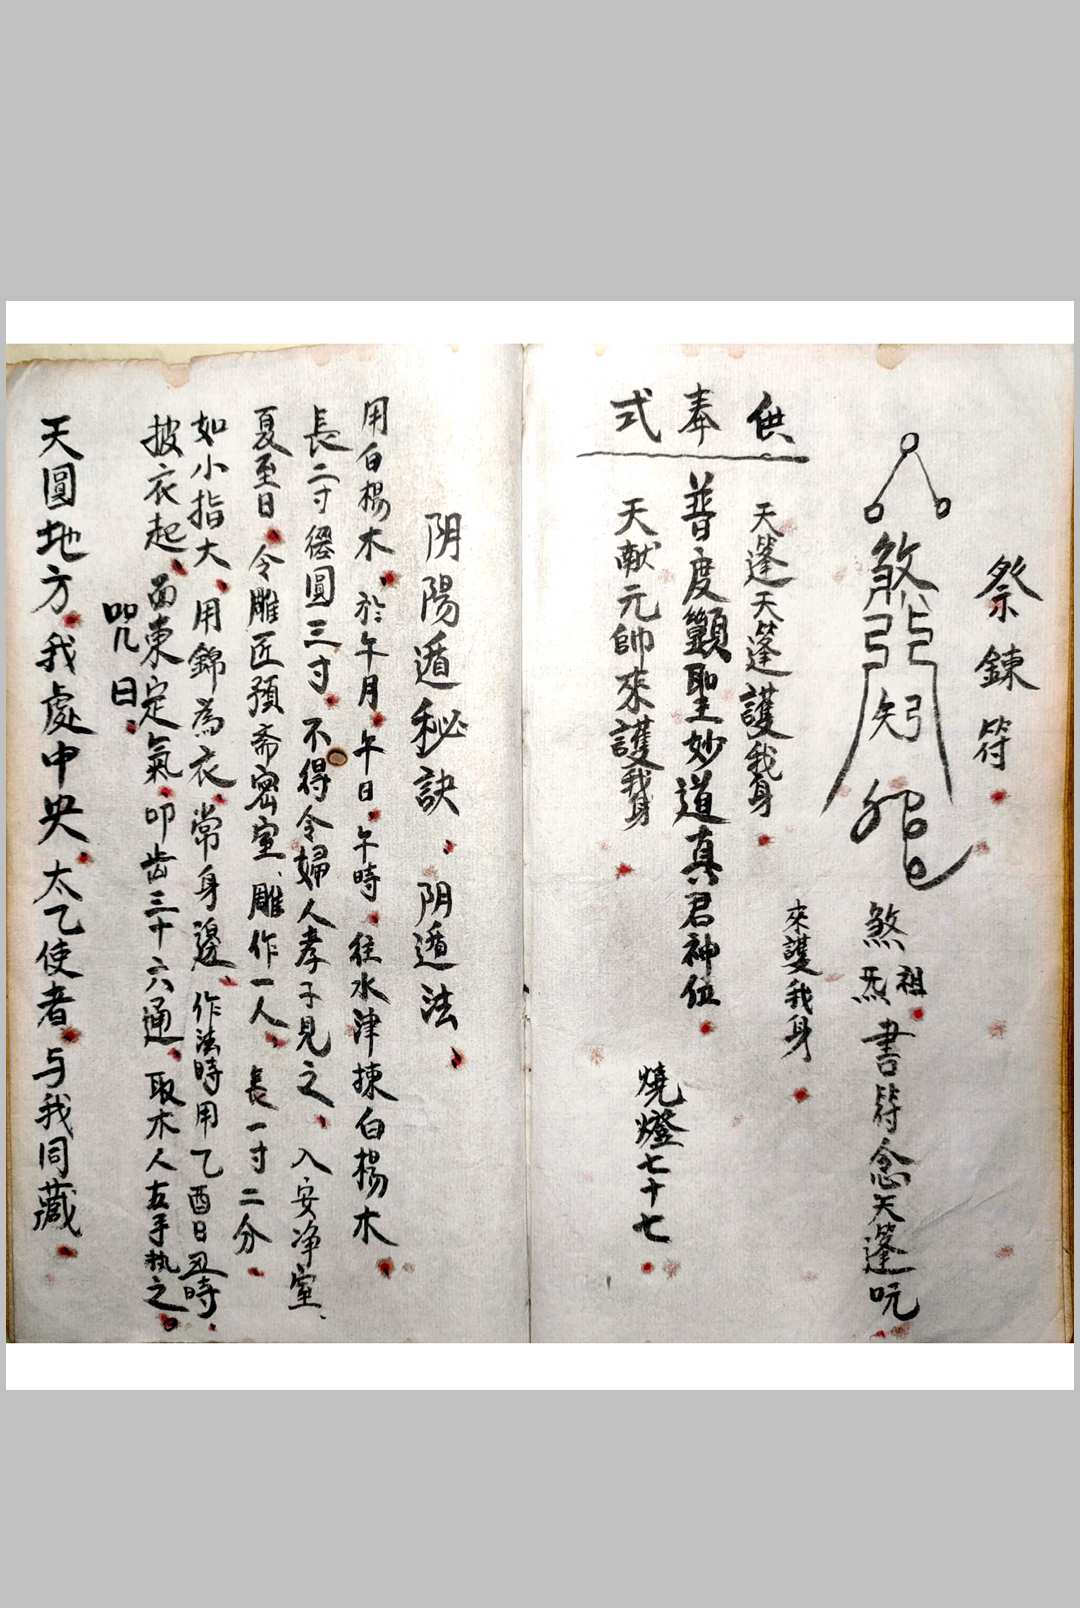 祭鍊符
煞
弓
知
煞
炁祖
書符念天蓬咒
供奉式
天蓬天蓬護我身
來護我身
普度顯聖妙道真君神位
天猷元帥來護我身
燒燈七十七
阴陽遁秘訣、阴遁法、
用白楊木、於午月、午日、午時、往水津揀白楊木、
長二寸徑圓三寸、不得令婦人孝子見之、入安净室、
夏至日、令雕匠預斋密室、雕作一人、長一寸二分、
如小指大、用錦為衣、常身邊、作法時用乙酉日丑時、
披衣起、面東定氣、叩齿三十六通、取木人左手執之。
咒曰、
天圓地方、我處中央、太乙使者、与我同藏、